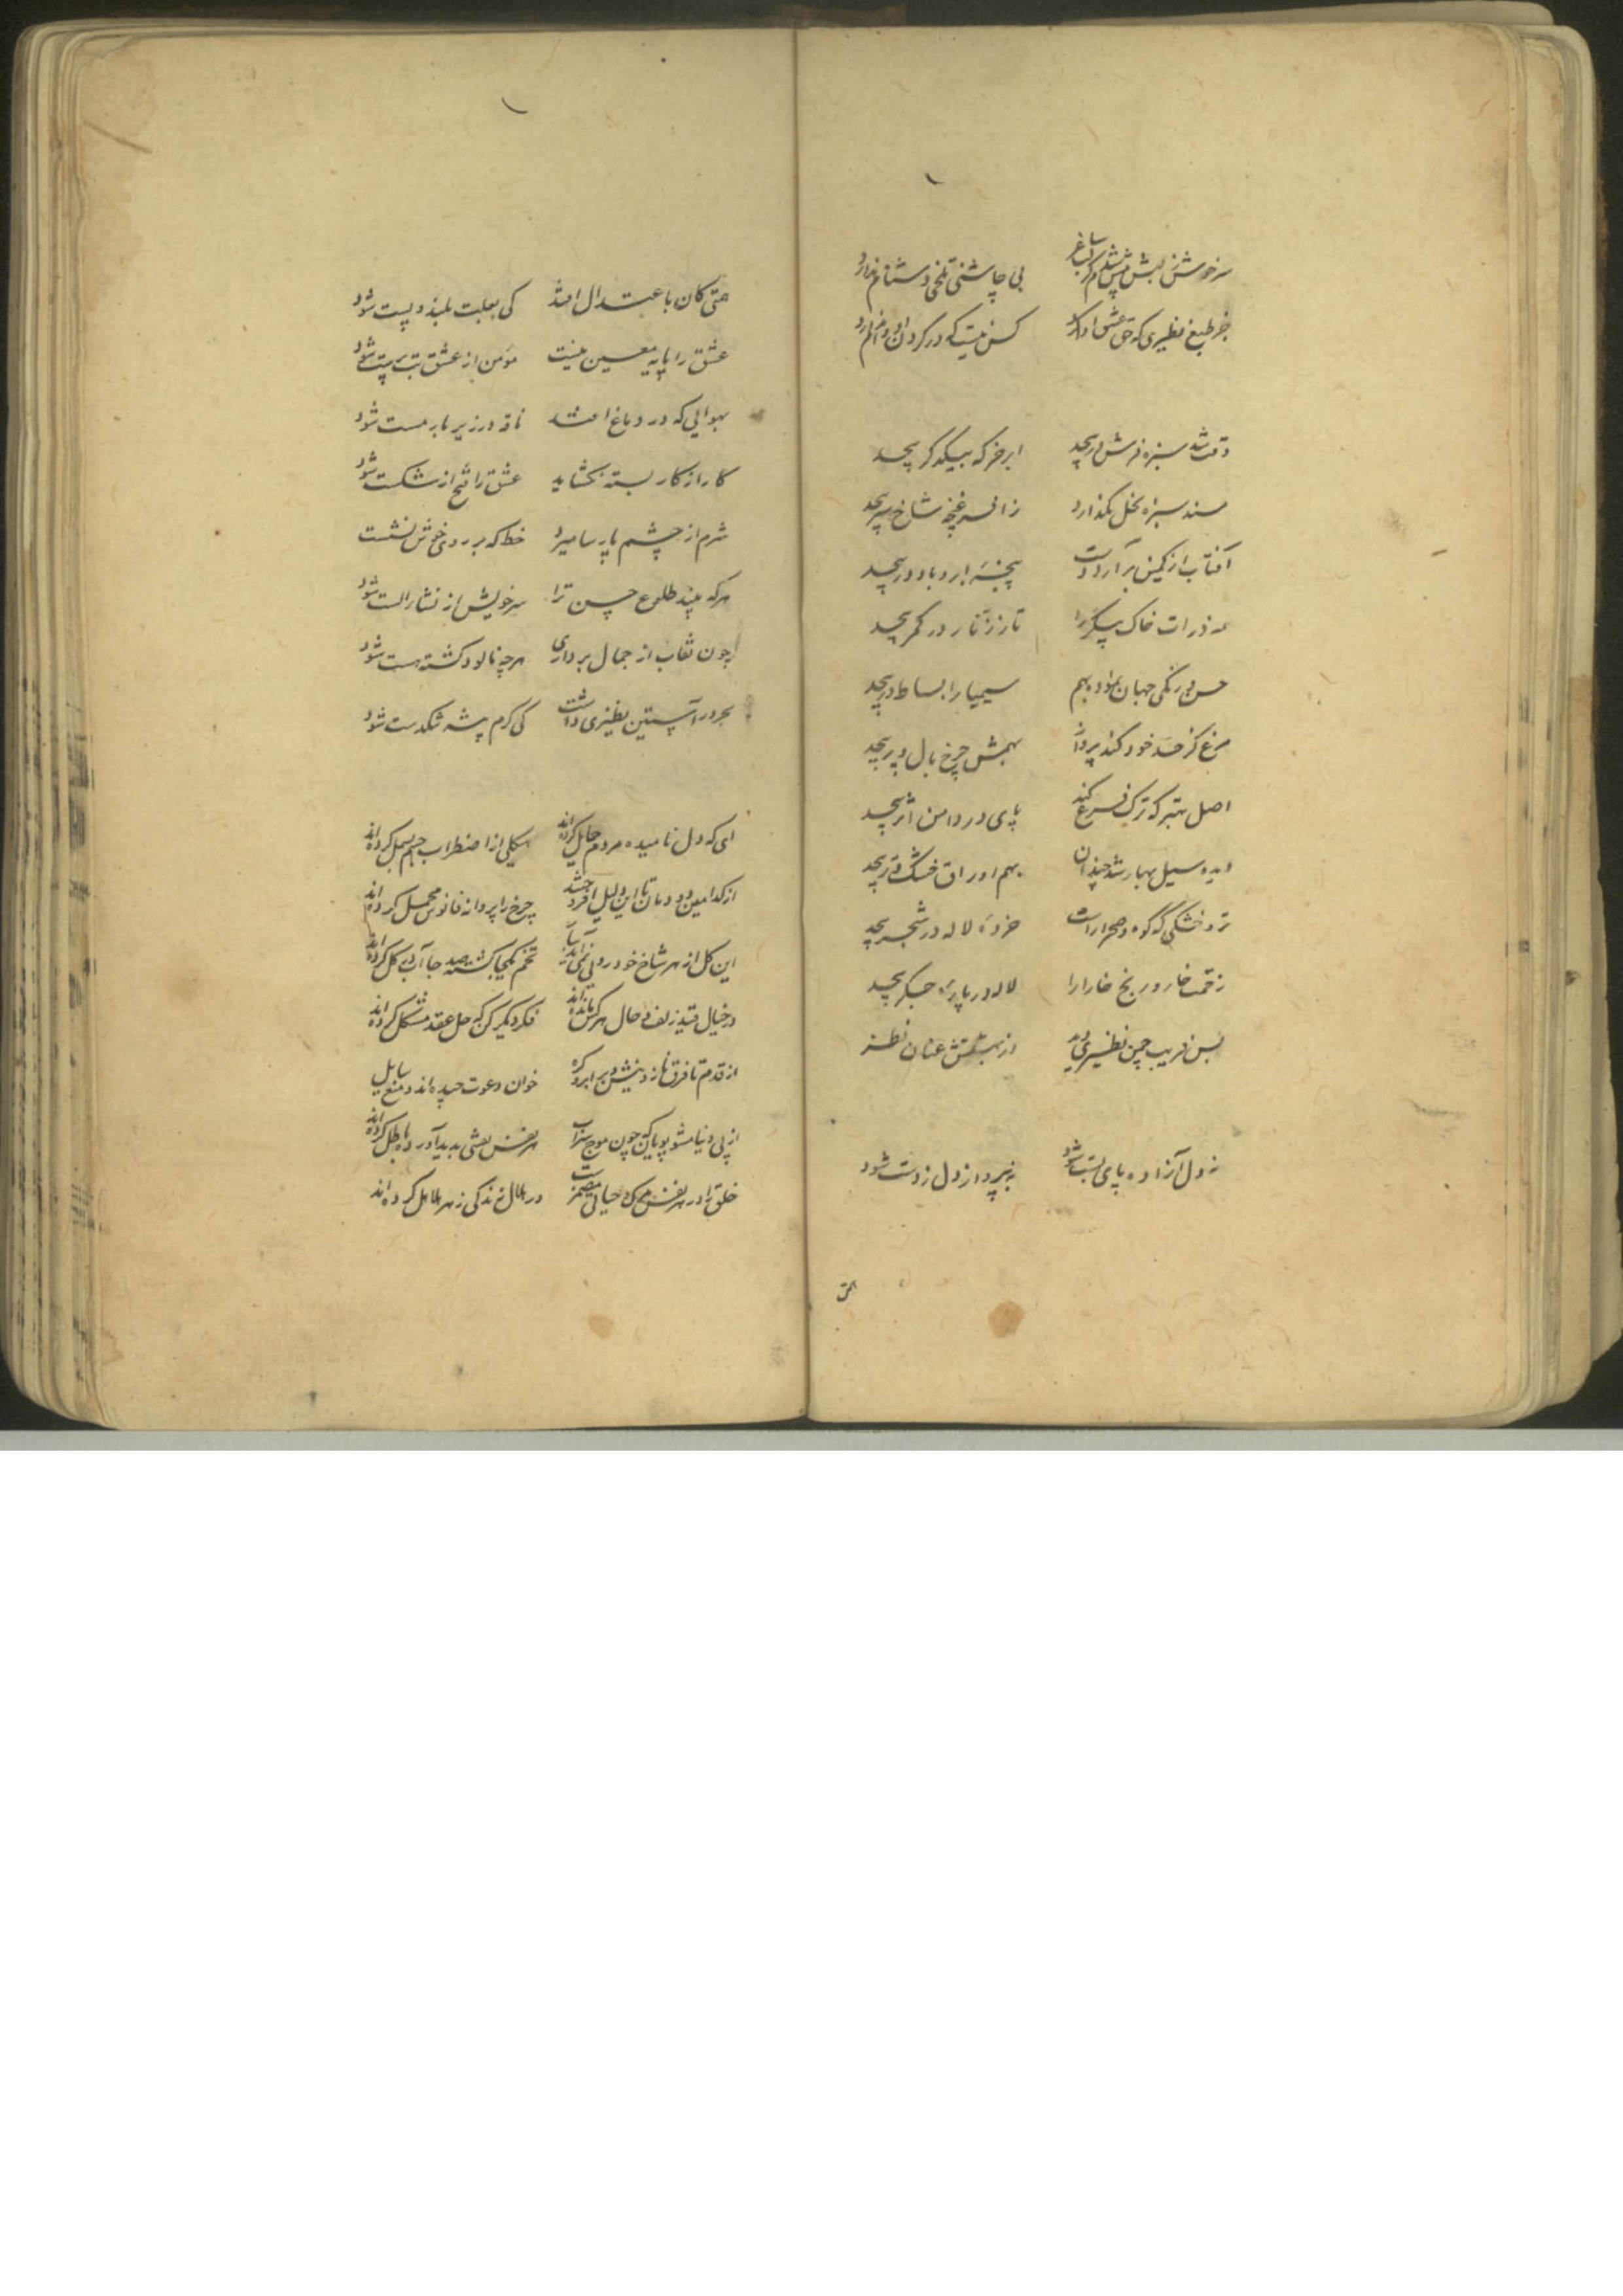 سرخوش ز لبش بی چاشنی تلخی دشنام ندارد
جز طبع نظیری که حق عشق ادا کرد کس نیست که در گردن او وام ندارد
وقت شد سبزه فرش در پیچد ابر خرگه بیکدگر پیچد
مسند سبزه نخل بگذارد ز افسر غنچه شاخ سر پیچد
آفتاب از کمین برآرد دست پنجه ابر و باد در پیچد
ذرات خاک پیکر را تار زنار در کمر پیچد
حسن دو رنگی جهان بهم سیمیا را بساط در پیچد
مرغ کز حد خود کند پرواز بهمش چرخ بال و پر پیچد
اصل بهتر که ترک فرع کند پای در دامن اثر پیچد
سیل بهار شد چندان بهم اوراق خشک و تر پیچد
تر و خشکی که کوه و صحرا راست خرده لاله در شجر پیچد
زحمت خار و رنج خارا را لاله در پاره جگر پیچد
بس فریب چمن نظیری دید از بهشتش عنان نظر
نه دل آزاده پای بست شود نه بپرداز دل ز دست شود
همتی کان باعتدال افتد کی بعلت بلند و پست شود
عشق را پایه معین نیست مؤمن از عشق بت پرست شود
بهوایی که در دماغ افتد ناقه در زیر بار مست شود
کار از کار بسته بگشاید عشق را فتح از شکست شود
شرم از چشم پارسا میرد خط که بر روی خوش نشست
هر که بیند طلوع حسن ترا سرخویش از نشا الست شود
چون نقاب از جمال برداری هرچه نابود گشته هست شود
بحر در آستین نظیری داشت کی کرم پیشه تنگدست شود
ای که دل نامیده مردم حایل کرده‌اند هیکلی از اضطراب جسم بسمل کرده‌اند
از کدامین دودمان تا این دلیل افروختند چرخ را پروانه فانوس محمل کرده‌اند
این گل از هر شاخ خودرویی نمی‌آید تخم یکجا کشته صد جا آب در گل کرده‌اند
در خیال قید زلف و خال هر کس مانده‌اند فکر دیگر کن که حل عقد مشکل کرده‌اند
از قدم تا فرق ناز و نیش و بر ابرو گره خوان دعوت چیده‌اند و منع سایل
از پی دنیا مشو پویا که چون موج سراب هر نفس نقشی پدید آورده باطل کرده‌اند
خلق را در هر نفس مرگ و حیاتی مضمر است در هلال زندگی زهر هلاهل کرده‌اند